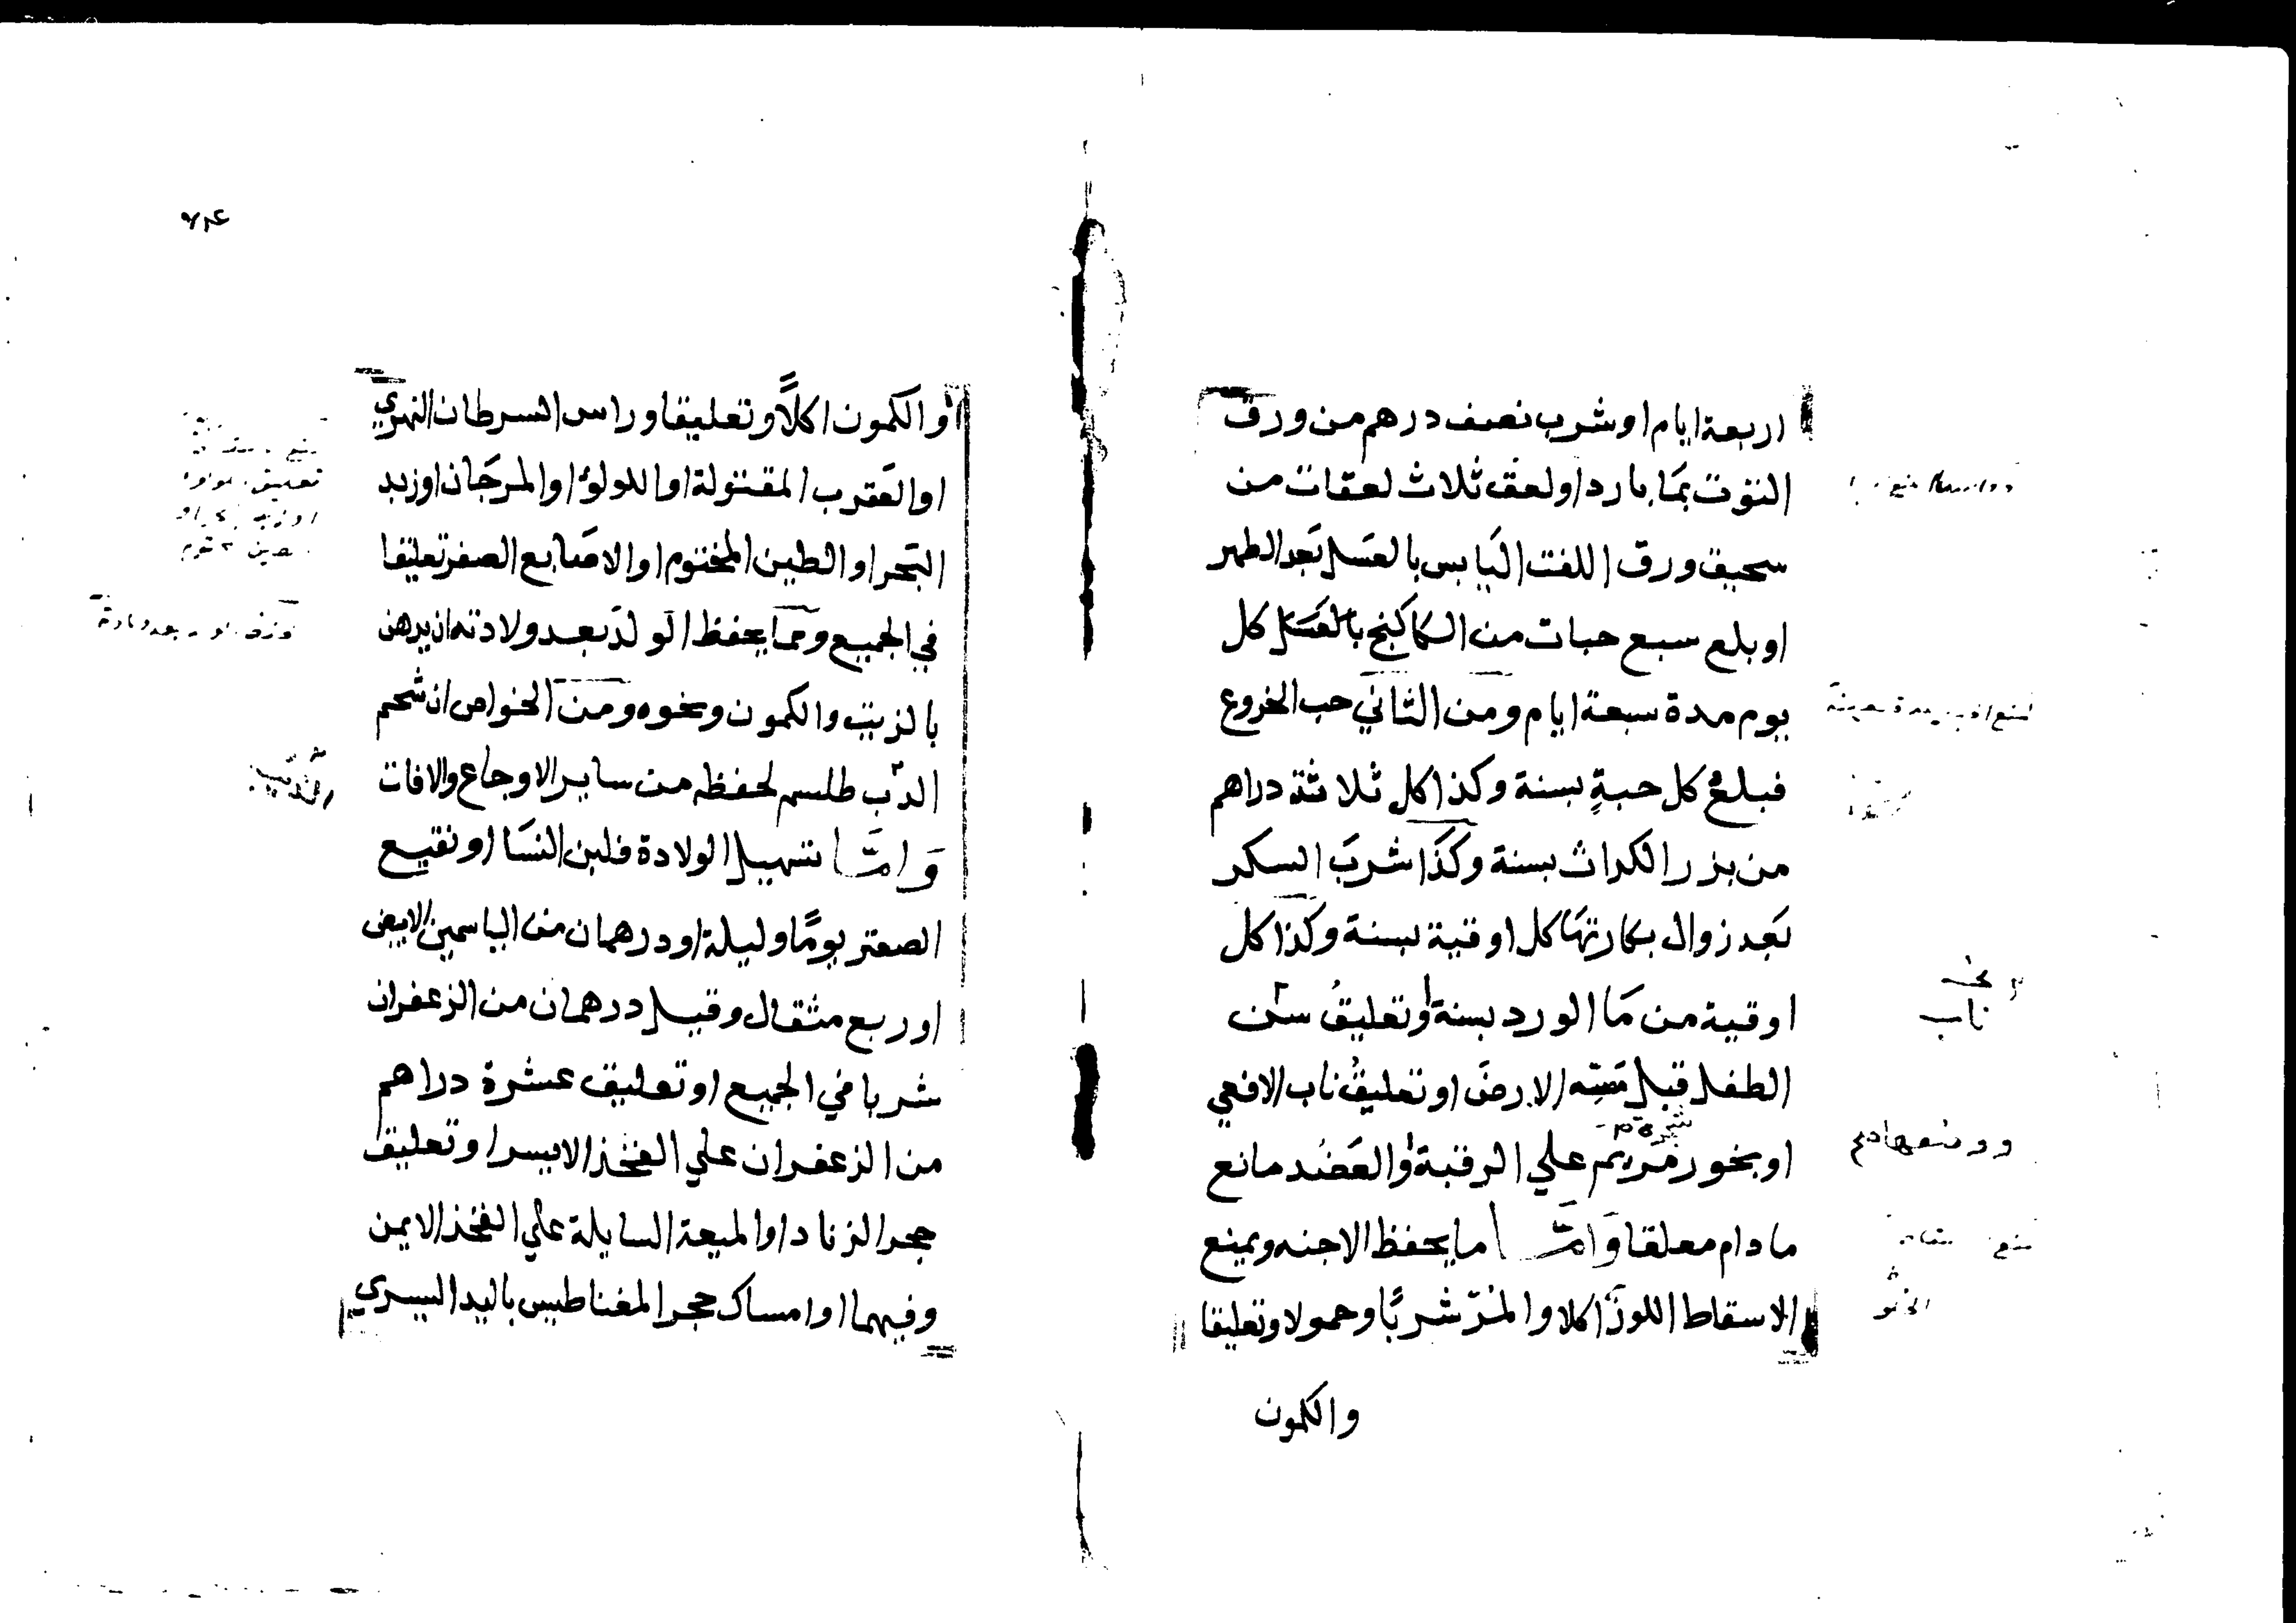 اربعة ايام او شرب نصف درهم من ورق
التوت بما بارد او لعق ثلاث لعقات من
سحيق ورق اللفت اليابس بالعسل بعد الطهر
او بلع سبع حبات من الكاكنج بالعسل كل
يوم مدة سبعة ايام ومن الثاني حب الخروع
فبلع كل حبة بسنة وكذا كل ثلاثة دراهم
من بزر الكراث بسنة وكذا شرب السكر
بعد زوال بكارتها كل اوقية بسنة وكذا كل
اوقية من ما الورد بسنة او تعليق سن
الطفل قبل مسه الارض او تعليق ناب الافعي
او بخور مريم علي الرقبة او العضد مانع
ما دام معلقا واما ما يحفظ الاجنه ويمنع
الاسقاط اللوز اكلا والمر شربا وحمولا وتعليقا
والكمون
ناب
او الكمون اكلا وتعليقا وراس السرطان النهري
او العقرب المقتولة او اللولؤ او المرجان او زبد
البحر او الطين المختوم او الاصابع الصفر تعليقا
في الجميع ومما يحفظ الولد بعد ولادته ان يدهن
بالزيت والكمون ونحوه ومن الخواص ان شحم
الدب طلسم لحفظه من ساير الاوجاع والافات
واما تسهيل الولادة فلبن النسا او نقيع
الصعتر يوما وليلة او درهمان من الياسمين الابيض
او ربع مثقال وقيل درهمان من الزعفران
شربا في الجميع او تعليق عشرة دراهم
من الزعفران علي الفخذ الايسر او تعليق
حجر الزناد او الميعة السايلة علي الفخذ الايمن
وفيهما او امساك حجر المغناطيس باليد اليسري